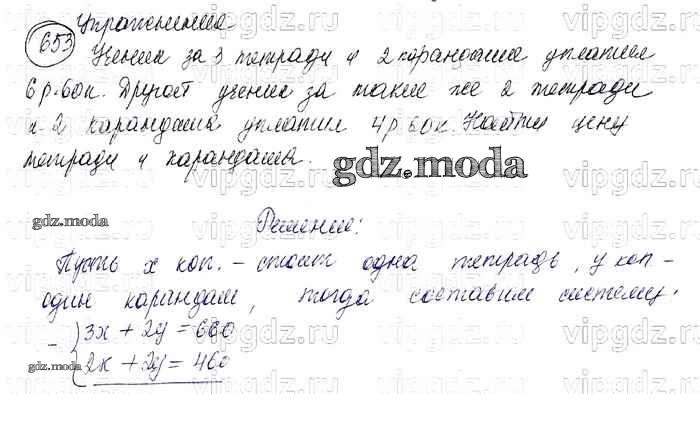 Упражнения
653 Ученик за 3 тетради и 2 карандаша уплатил
6 р. 60 к. Другой ученик за такие же 2 тетради
и 2 карандаша уплатил 4 р 60 к. Найти цену
тетради и карандаша.
gdz.moda
gdz.moda
Решение:
Пусть x коп. – стоит одна тетрадь, y коп –
один карандаш, тогда составим систему:
- { 3x + 2y = 660
2x + 2y = 460
gdz.moda
vipgdz.ru